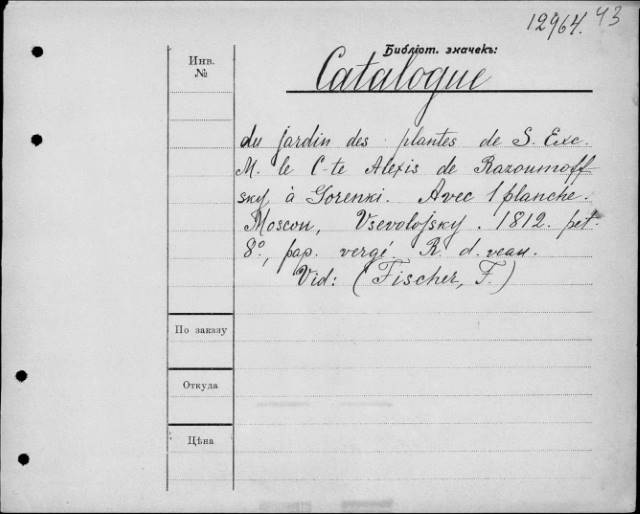 12964. 43
Библіот. значекъ:
Инв.
№
Catalogue
du jardin des plantes de S. Exc.
M. le C-te Alexis de Razoumoff
sky à Gorenki. Avec 1 planche.
Moscou, Vsevolojsky. 1812. pet.
8º, pap. vergé. R. d. veau.
Vid: (Fischer, F.)
По заказу
Откуда
Цѣна